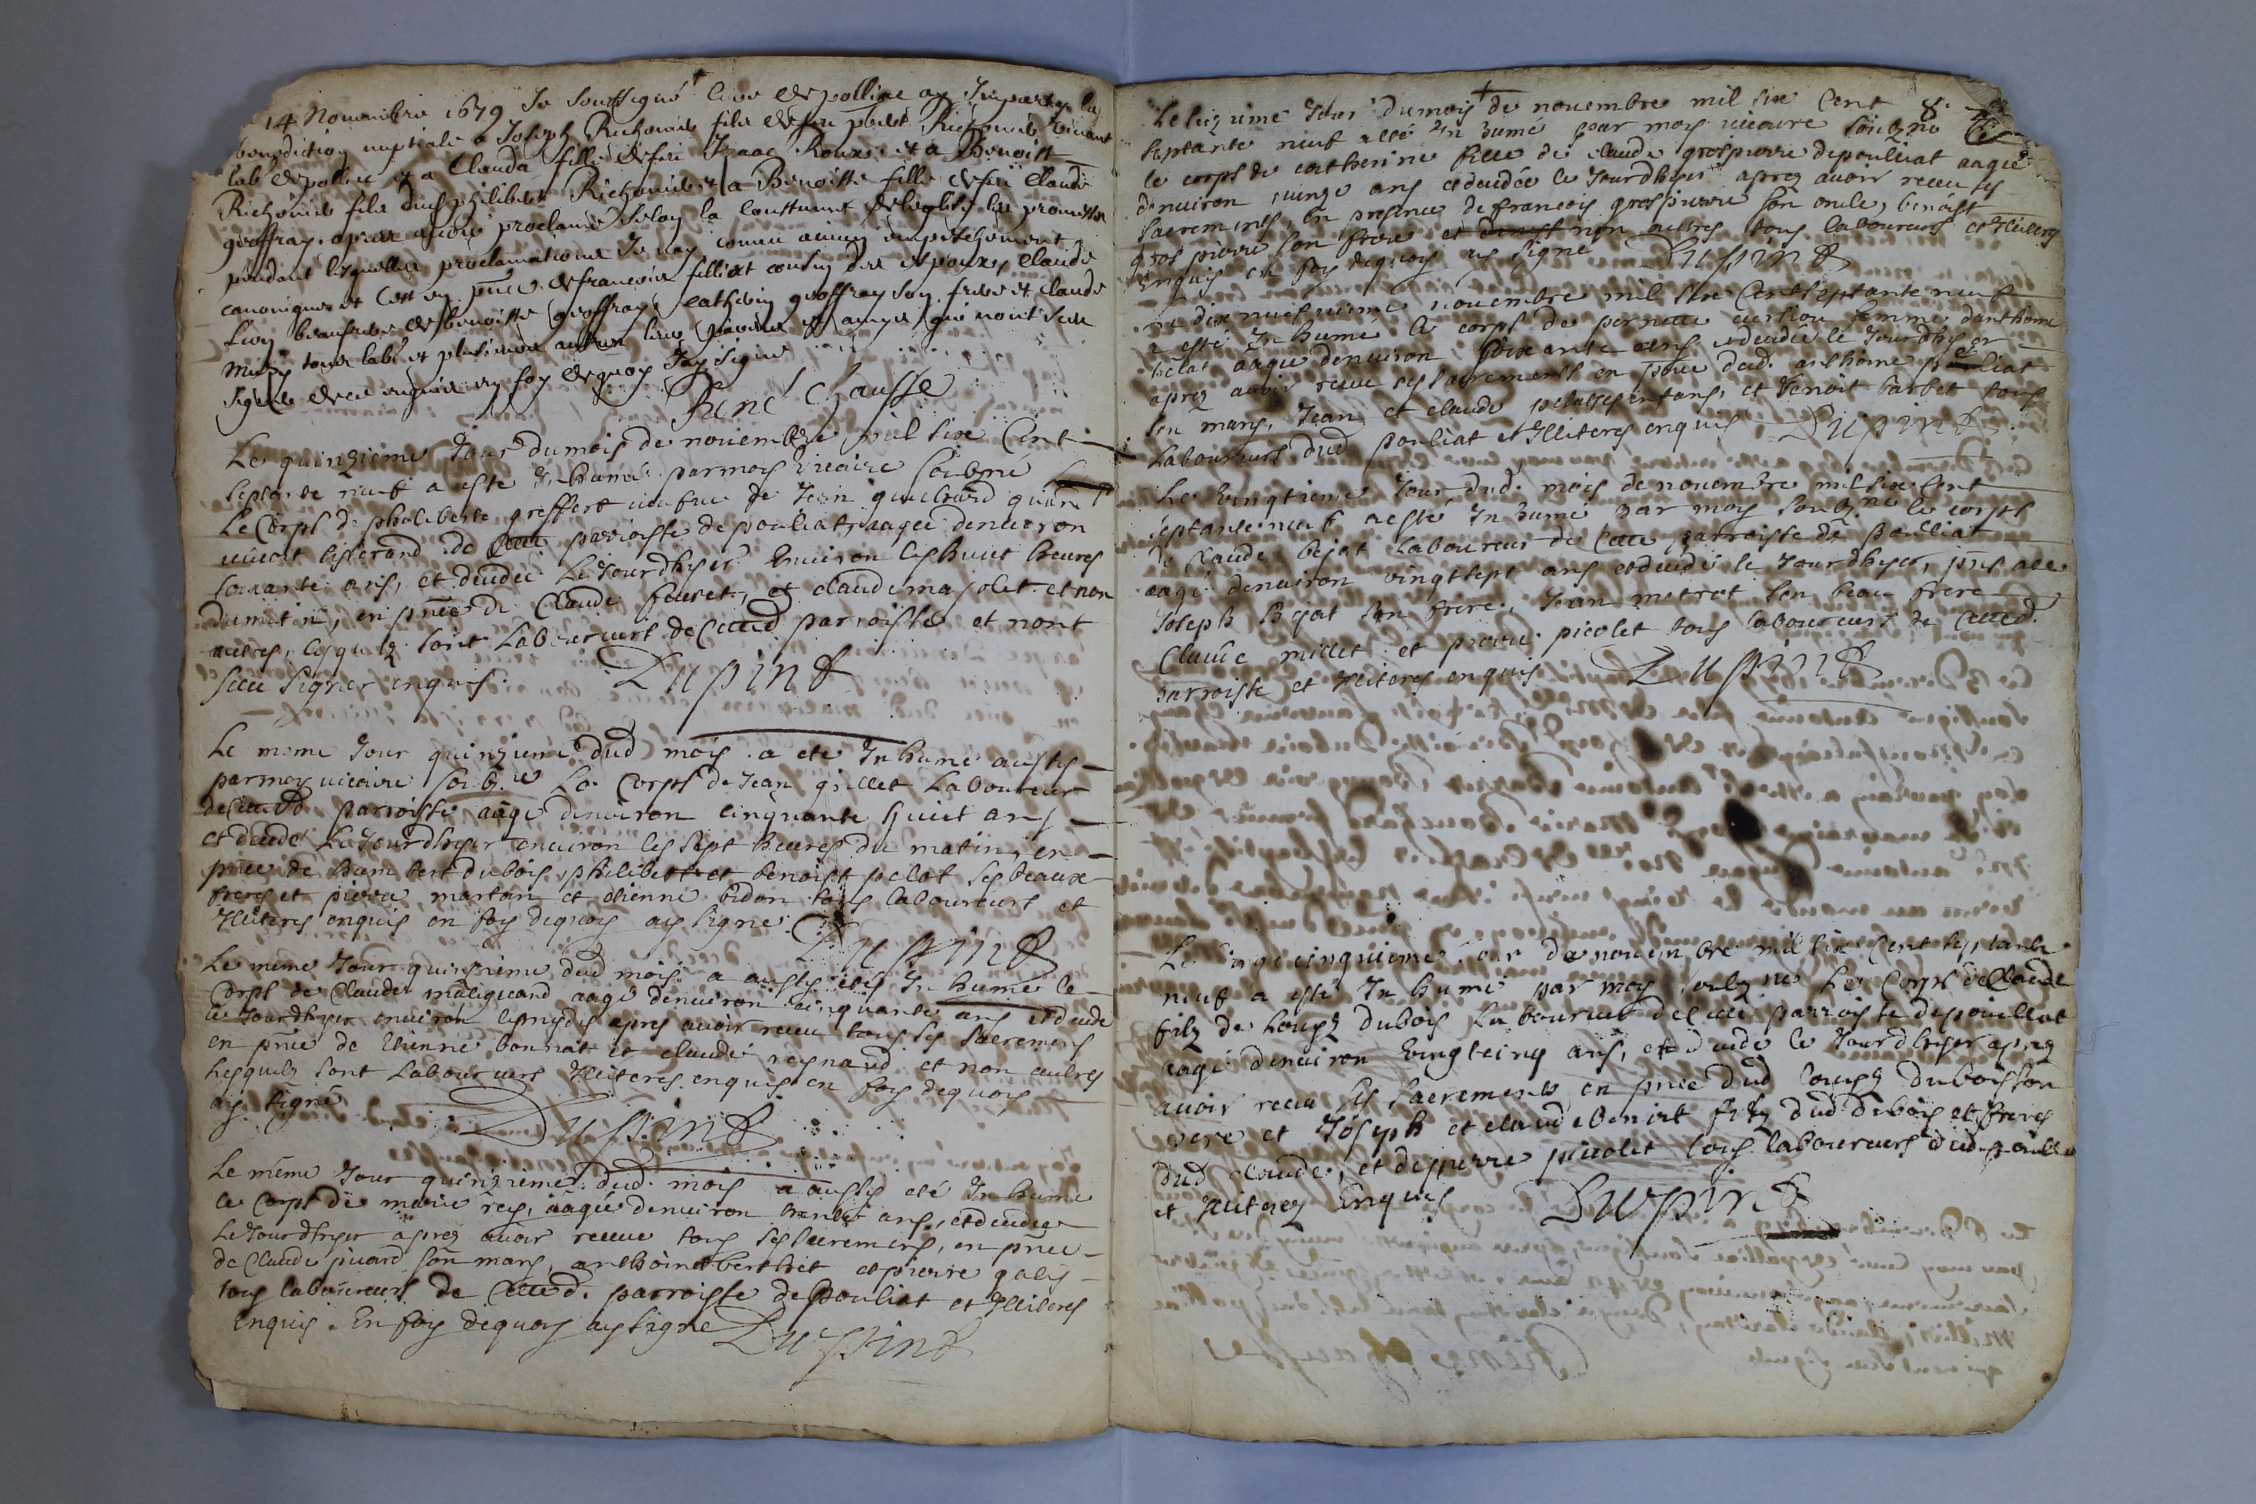 14 Nouembre 1679 Je soussigné Curé de polliac ay Imparty la
benediction nuptiale a Joseph Richonnet filz de feu Richonnet viuant
lab de polliac et a Clauda fille de feu Isaac Roux et a Benoist
Richonnet filz dud philibert Richonnet et a Benoiste fille de feu Claude
geoffray apres auoir proclamé selon la coustume de leglise les promesses
pendant lesquelles proclamations Je nay conneu aucun empeschement
canonique et cest en pnce de francois filliat cousin des espoux, Claude
beaufrere de benoiste geoffray, geoffray son frere et Claude
tous lab et plusieurs autres leurs parens et amys qui nont sceu
signer de ce enquis en foy de quoy Jay signé
René Chausse
Le quinzieme Jour du mois de nouembre mil six Cent
septante neuf a esté Inhumé par moy vicaire soubné
Le Corps de philiberte greffert ueufue de Jean quand
viuoit tisserand de Cette parroisse de pouliat, aagee denuiron
soixante ans, et decedee Le Jourdhyer enuiron les huict heures
du matin, en pnce de Claude feuret, et claude majolet et non
autres, lesquelz sont Laboureurs de Cetted parroisse et nont
sceu signer enquis. Dupind
Le meme Jour quinzieme dud mois a eté Inhumé aussy
par moy uicaire soubne Le Corps de Jean gillet Laboureur
de Cetted parroisse aagé denuiron cinquante huict ans
et decede Le Jourdhyer enuiron les sept heures du matin, en
pnce de humbert dubois, philibert et benoist pelot ses beaux
freres et pierre martin et etienne bidon tous laboureurs et
Illiteres enquis en foy dequoy ay signé. Dupind
Le meme Jour quinzieme dud mois a aussy eté Inhumé le
Corps de Claude maliquand aagé denuiron cinquante ans et decedé
le Jourdhyer enuiron les mydy apres auoir receu tous ses sacremens
en pnce de etienne bonnat et claude reynaud et non aultres
Lesquelz sont Laboureurs Illiteres enquis en foy dequoy
ay signé Dupind
Le meme Jour quinzieme dud mois a aussy eté Inhumé
le Corps de marie rey, aagée denuiron trente ans, et decedee
Le Jourdhyer apres auoir receue tous ses sacremens, en pnce
de Claude piuard son mary, anthoine berthet et pierre galy
tous laboureurs de Cetted. parroisse de pouliat et Illiteres
enquis. En foy dequoy ay signe Dupind
8.
Le seizieme Jour du mois de nouembre mil six Cent
septante neuf a esté Inhumé par moy uicaire soubzné
le corps de catherine fille de claude grospierre de pouliat aagee
denuiron quinze ans et decedée le Jourdhyer apres auoir receu ses
sacrements, en presence de francois grospierre son oncle, benoist
grospierre son frere et non aultres tous laboureurs et Illiteres
enquis en foy dequoy ay signé Dupind
Le dix neufuieme nouembre mil six Cent septante neuf
a esté Inhumé le corps de pernette femme danthoine
aagee denuiron soixante ans et decedée le Jourdhyer
aprez auoir receu ses sacrements en pnce dud. anthoine
son mary, Jean et claude ses enfans, et benoit barbet tous
Laboureurs dud pouliat et Illiteres enquis Dupind
Le vingtieme Jour dud. mois de nouembre mil six Cent
septante neuf a esté Inhumé par moy soubzné le corps
de Claude bejat Laboureur de Cette parroisse de pouliat
aagé denuiron vingt sept ans et decedé le Jourdhyer, pns
Joseph Bejat son frere, Jean metrat son beau frere
Claude millet et pierre picolet tous laboureurs de Cetted.
parroisse et Illiteres enquis Dupind
Le vingt cinquieme Jour de nouembre mil six Cent septante
neuf a esté Inhumé par moy soubzné Le Corps de Claude
filz de Louys dubois Laboureur de Cette parroisse de pouillat
aagé denuiron vingt cinq ans, et decedé le Jourdhyer aprez
auoir receu ses sacrements en pnce dud Louys dubois son
pere et Joseph et claude benoit filz dud dubois et freres
dud claude, et de pierre picolet tous laboureurs dud
et Illiterez Enquis Dupind